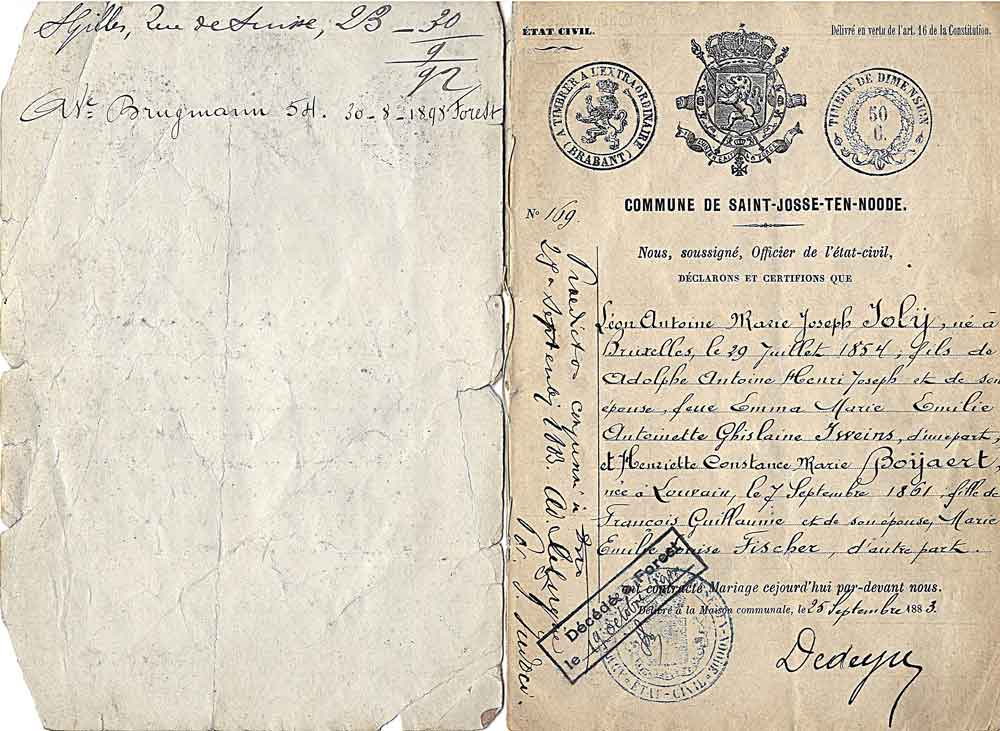 S/Gilles, Rue de Suisse, 23 - 30
9
92
Ave Brugmann 54. 30-8-1898 Forest
ÉTAT CIVIL.
Délivré en vertu de l'art. 16 de la Constitution.
A TIMBRER A L'EXTRAORDINAIRE
(BRABANT)
TIMBRE DE DIMENSION
50
C.
COMMUNE DE SAINT-JOSSE-TEN-NOODE.
No 169.
Nous, soussigné, Officier de l'état-civil,
DÉCLARONS ET CERTIFIONS QUE
Léon Antoine Marie Joseph Joly, né à
Bruxelles, le 29 Juillet 1854; fils de
Adolphe Antoine Henri Joseph et de son
épouse, feue Emma Marie Emilie
Antoinette Ghislaine Iweins, d'une part,
et Henriette Constance Marie Boyaert,
née à Louvain, le 7 Septembre 1861, fille de
François Guillaume et de son épouse, Marie
Emilie Fischer, d'autre part.
ont contracté Mariage cejourd'hui par-devant nous.
Délivré à la Maison communale, le 25 Septembre 1883.
Décédé à Forest
le 19 octobre
ETAT-CIVIL
28a Septembris 1883.